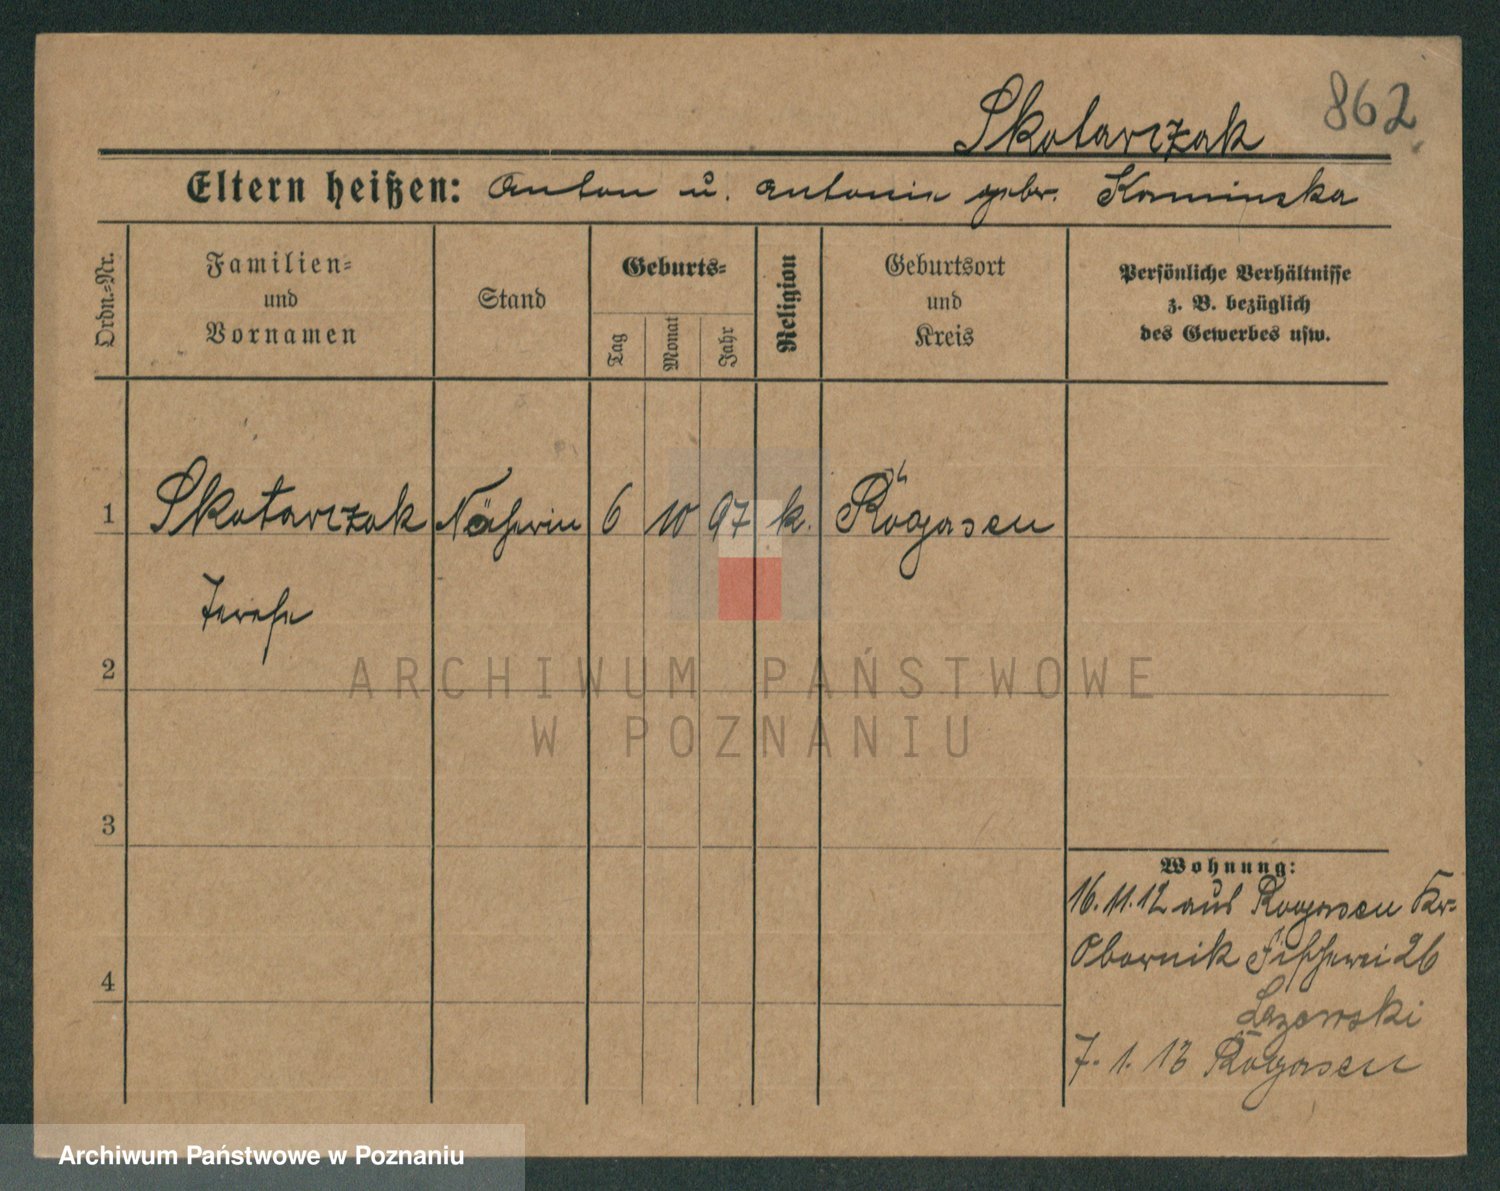 862
Skotarczak
Eltern heißen: Anton u. Antonie gebr. Kaminska
Ordn.-Nr.
Familien-
und
Vornamen
Stand
Geburts-
Tag
Monat
Jahr
Religion
Geburtsort
und
Kreis
Persönliche Verhältnisse
z. B. bezüglich
des Gewerbes usw.
1 Skotarczak Näherin 6 10 97 k. Rogasen
Terese
2
3
4
Wohnung:
16. 11. 12 aus Rogasen Kr.
Obornik Fischerei 26
Lazewski
7. 1. 13 Rogasen
ARCHIWUM PAŃSTWOWE
W POZNANIU
Archiwum Państwowe w Poznaniu